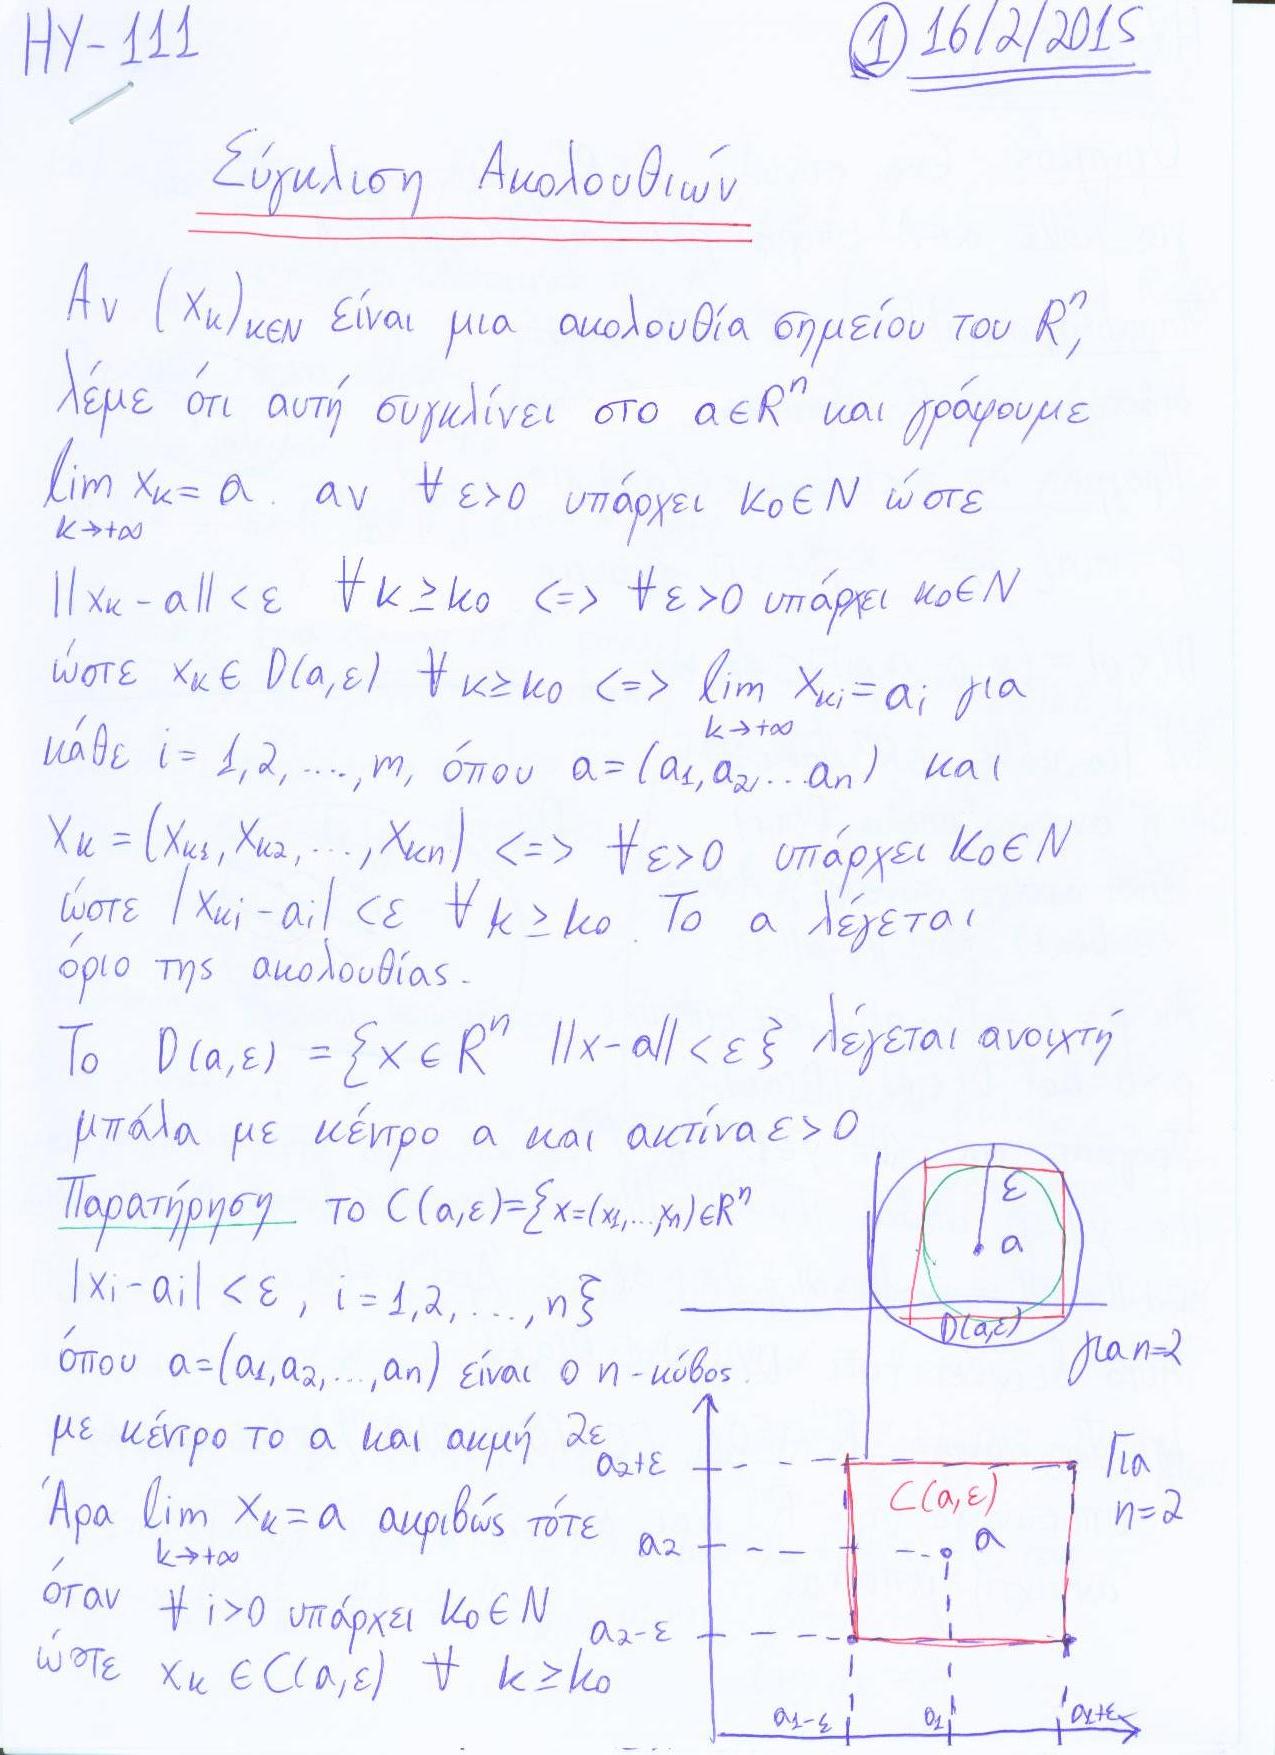 ΗΥ-111
① 16/2/2015
Σύγκλιση Ακολουθιών
Αν (xκ)κ∈N είναι μια ακολουθία σημείου του Rⁿ,
λέμε ότι αυτή συγκλίνει στο a∈Rⁿ και γράφουμε
lim xκ = a. αν ∀ ε>0 υπάρχει κ₀∈N ώστε
k→+∞
||xκ - a|| < ε ∀κ ≥ κ₀ <=> ∀ε>0 υπάρχει κ₀∈N
ώστε xκ ∈ D(a,ε) ∀κ≥κ₀ <=> lim xκi = ai για
k→+∞
κάθε i = 1,2,....,m, όπου a=(a₁,a₂,...an) και
xκ = (xκ₁, xκ₂, ..., xκn) <=> ∀ε>0 υπάρχει κ₀∈N
ώστε |xκi - ai| < ε ∀κ ≥ κ₀. Το a λέγεται
όριο της ακολουθίας.
Το D(a,ε) = {x ∈ Rⁿ ||x-a|| < ε} λέγεται ανοιχτή
μπάλα με κέντρο a και ακτίνα ε>0
Παρατήρηση το C(a,ε)={x=(x₁,...,xn)∈Rⁿ
|xi - ai| < ε, i = 1,2,...,n}
όπου a=(a₁,a₂,...,an) είναι ο n-κύβος.
με κέντρο το a και ακμή 2ε
Άρα lim xκ = a ακριβώς τότε
k→+∞
όταν ∀ i>0 υπάρχει κ₀∈N
ώστε xκ ∈ C(a,ε) ∀ κ ≥ κ₀
ε
a
D(a,ε)
για n=2
a₂+ε
C(a,ε)
Για
n=2
a₂
a
a₂-ε
a₁-ε
a₁
a₁+ε